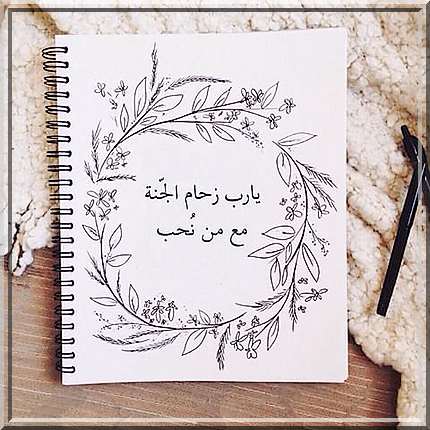 يارب زحام الجّنة
مع من نُحب